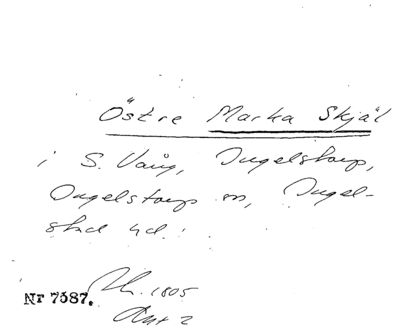 Östre Marka Skjäl
i S. Vång, Ingelstorp,
Ingelstorps sn, Ingel-
stad hd.
1805
Akt 2
Nr 7587.